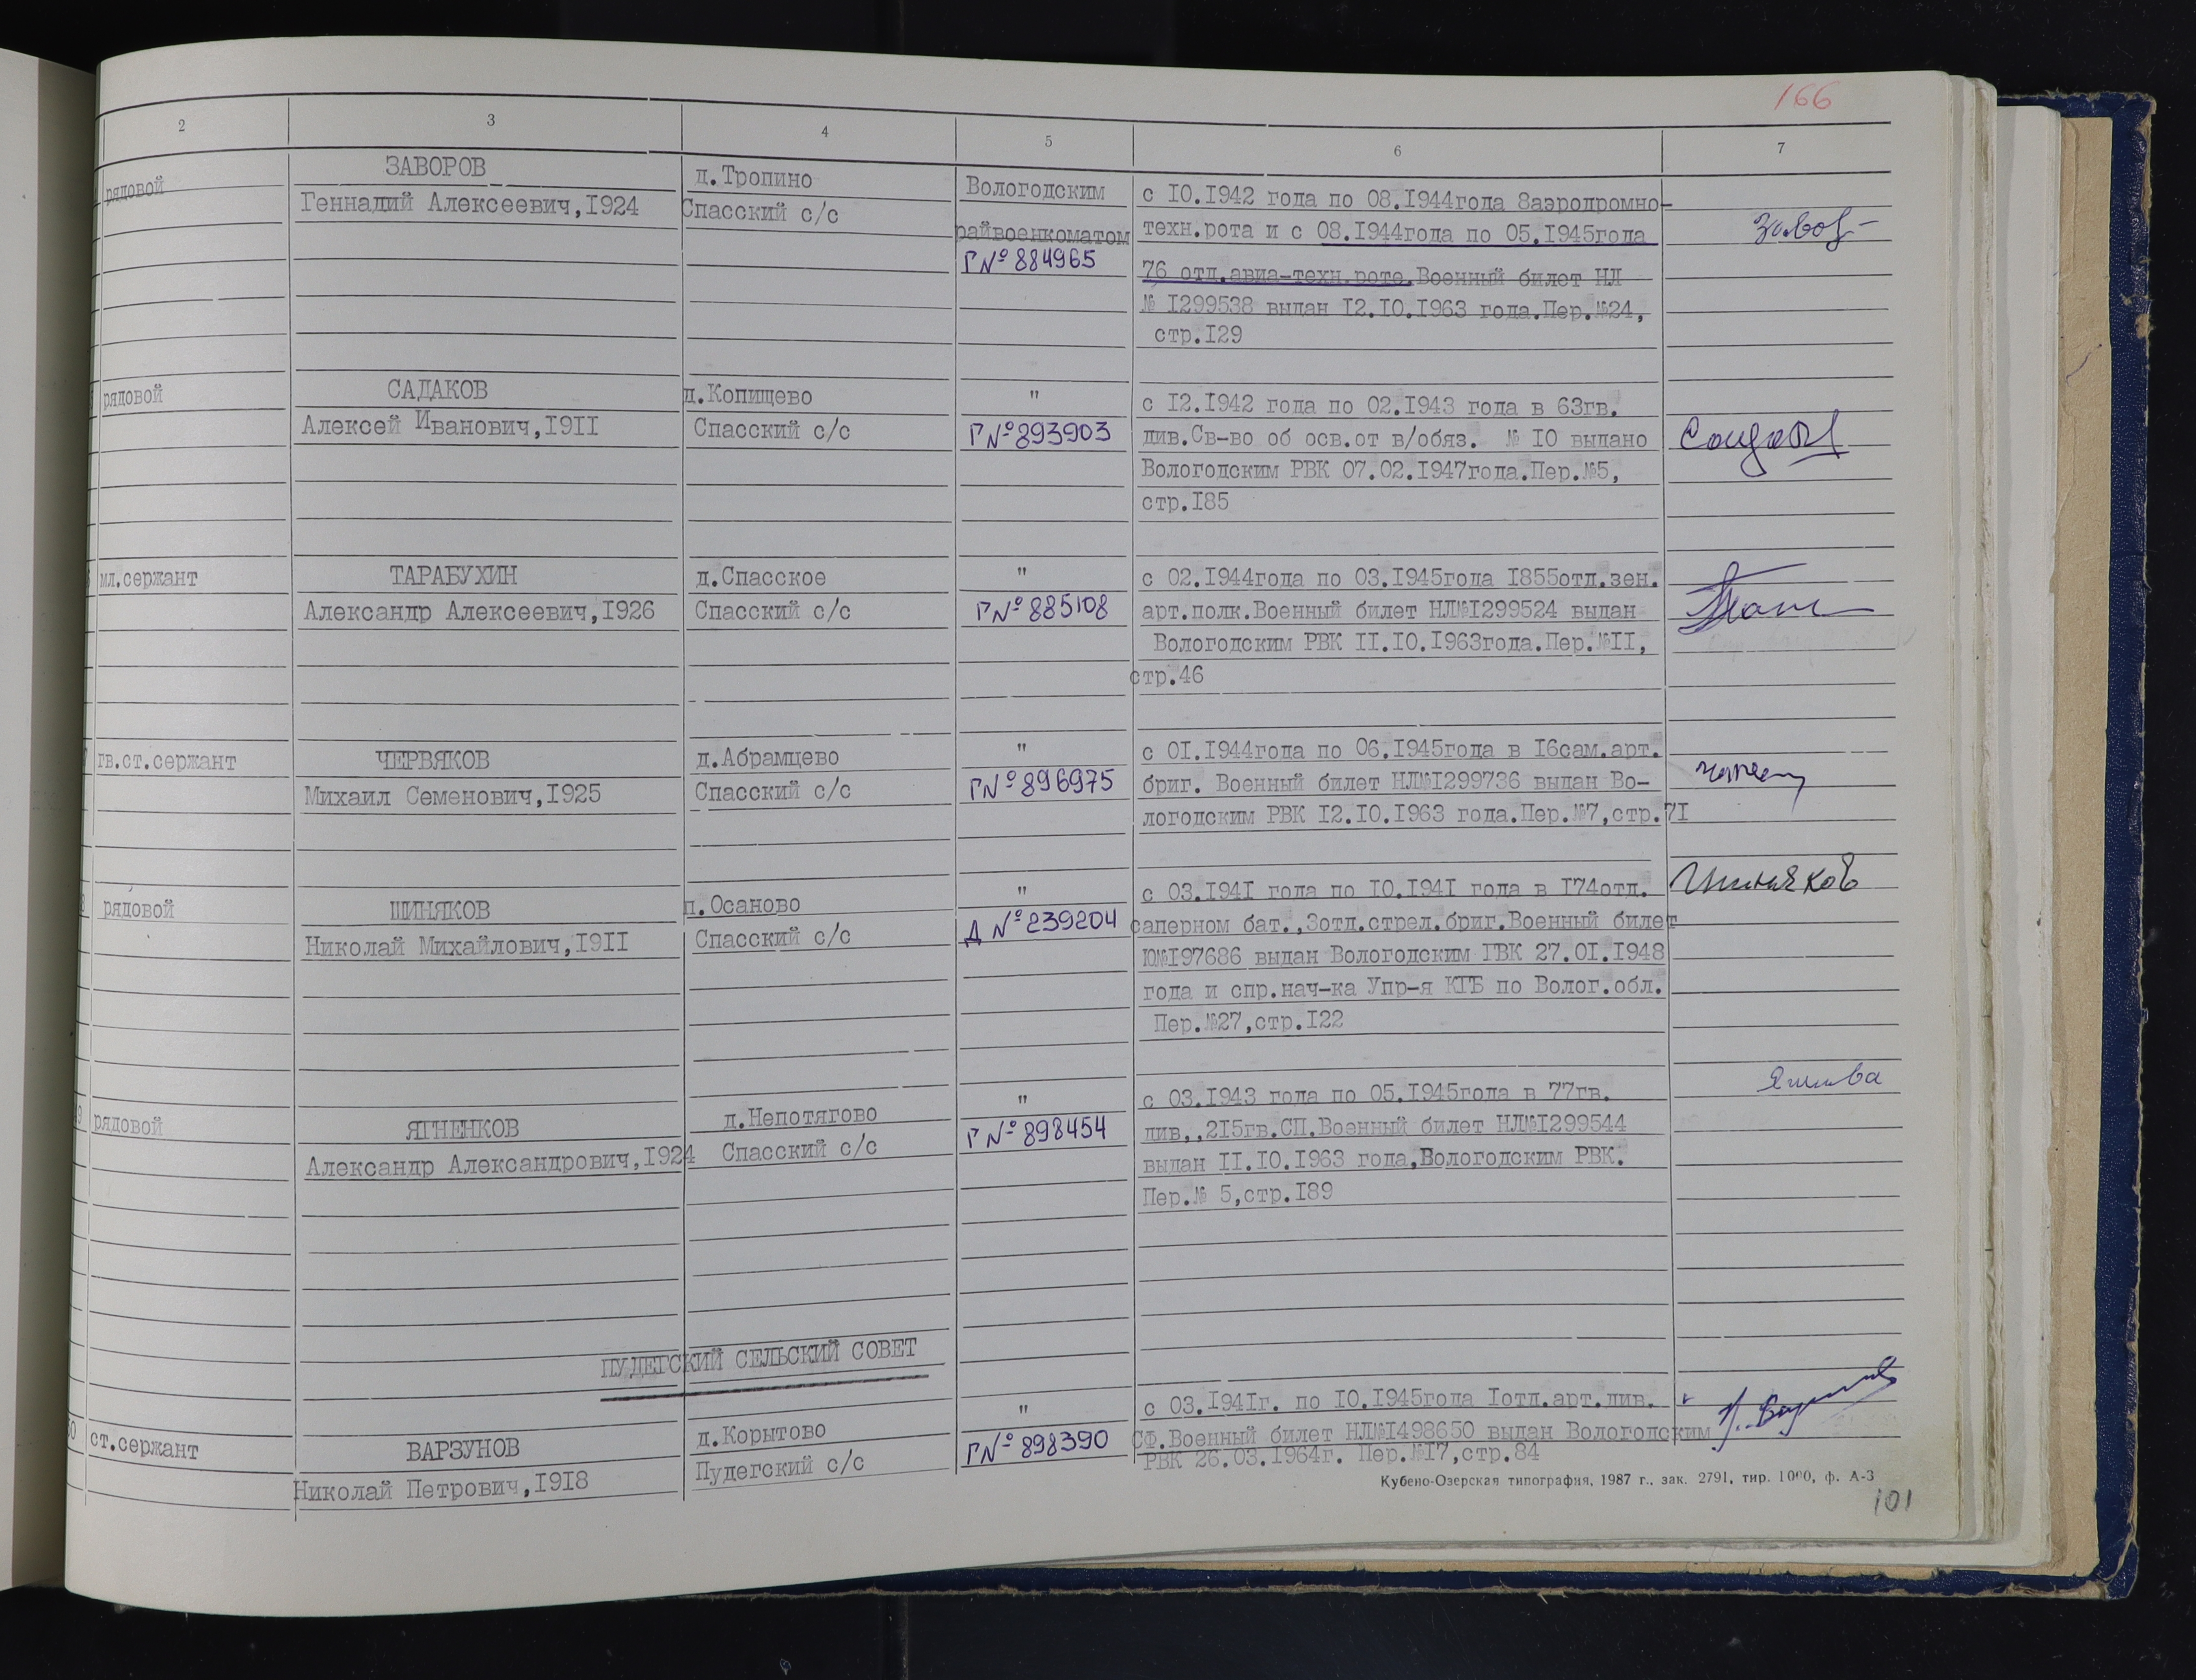 166
2 3 4 5 6 7
рядовой
ЗАВОРОВ
Геннадий Алексеевич,I924
д.Тропино
Спасский с/с
Вологодским
райвоенкоматом
Г № 884965
с IO.I942 года по 08.I944года 8аэродромно-
техн.рота и с 08.I944года по 05.I945года
76 отд.авиа-техн.роте.Военный билет НЛ
№ I299538 выдан I2.IO.I963 года.Пер.№24,
стр.I29
рядовой
САДАКОВ
Алексей Иванович,I9II
д.Копищево
Спасский с/с
"
Г № 893903
с I2.I942 года по 02.I943 года в 63гв.
див.Св-во об осв.от в/обяз. № IO выдано
Вологодским РВК 07.02.I947года.Пер.№5,
стр.I85
мл.сержант
ТАРАБУХИН
Александр Алексеевич,I926
д.Спасское
Спасский с/с
"
Г № 885108
с 02.I944года по 03.I945года I855отд.зен.
арт.полк.Военный билет НЛ№I299524 выдан
Вологодским РВК II.IO.I963года.Пер.№II,
стр.46
гв.ст.сержант
ЧЕРВЯКОВ
Михаил Семенович,I925
д.Абрамцево
Спасский с/с
"
Г № 896975
с OI.I944года по 06.I945года в I6сам.арт.
бриг. Военный билет НЛ№I299736 выдан Во-
логодским РВК I2.IO.I963 года.Пер.№7,стр.7I
рядовой
ШИНЯКОВ
Николай Михайлович,I9II
п.Осаново
Спасский с/с
"
Д № 239204
с 03.I94I года по IO.I94I года в I74отд.
саперном бат.,3отд.стрел.бриг.Военный билет
Ю№I97686 выдан Вологодским ГВК 27.OI.I948
года и спр.нач-ка Упр-я КГБ по Волог.обл.
Пер.№27,стр.I22
Шиняков
рядовой
ЯГНЕНКОВ
Александр Александрович,I924
д.Непотягово
Спасский с/с
"
Г № 898454
с 03.I943 года по 05.I945года в 77гв.
див,,2I5гв.СП.Военный билет НЛ№I299544
выдан II.IO.I963 года,Вологодским РВК.
Пер.№ 5,стр.I89
ПУДЕГСКИЙ СЕЛЬСКИЙ СОВЕТ
ст.сержант
ВАРЗУНОВ
Николай Петрович,I9I8
д.Корытово
Пудегский с/с
"
Г № 898390
с 03.I94Iг. по IO.I945года Iотд.арт.див.
СФ.Военный билет НЛ№I498650 выдан Вологодским
РВК 26.03.I964г. Пер.№I7,стр.84
Кубено-Озерская типография, 1987 г., зак. 2791, тир. 1000, ф. А-3
101